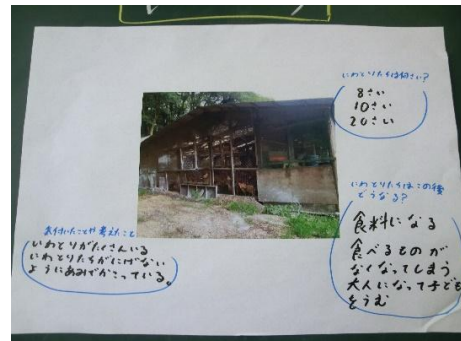 にわとりたちは何さい?
8さい
10さい
20さい
にわとりたちはこの後
どうなる?
食料になる
食べるものが
なくなってしまう
大人になって子ども
をうむ
気付いたことや考えたこと
にわとりがたくさんいる
にわとりたちがにげない
ようにあみでかこっている。